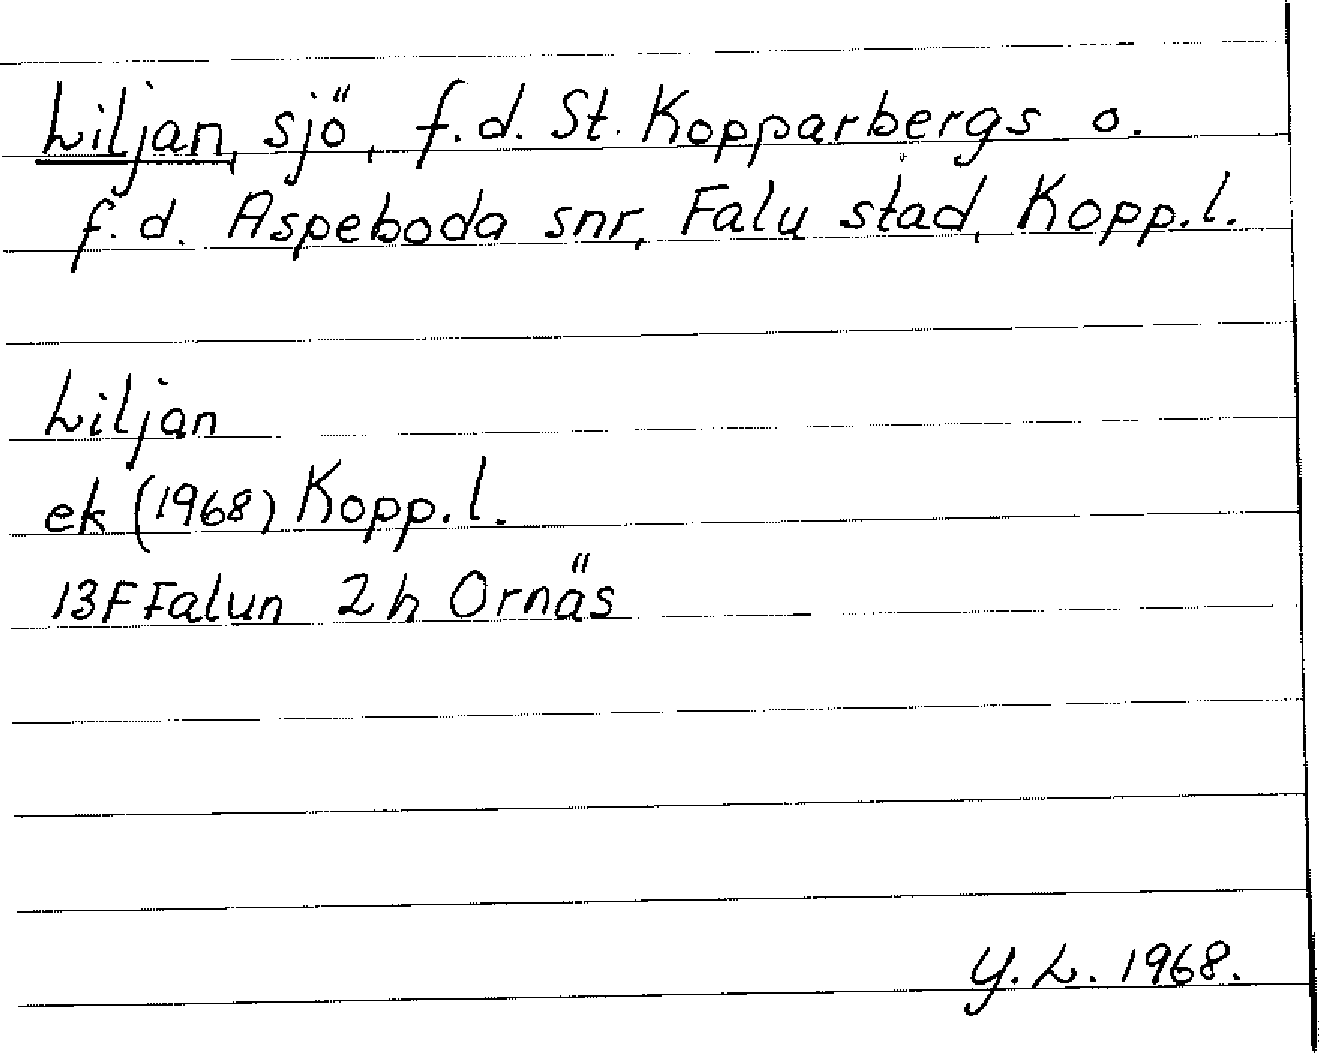 Liljan, sjö, f.d. St. Kopparbergs o.
f.d. Aspeboda snr, Falu stad, Kopp.l.
Liljan
ek (1968) Kopp.l.
13F Falun 2h Ornäs
Y.L. 1968.